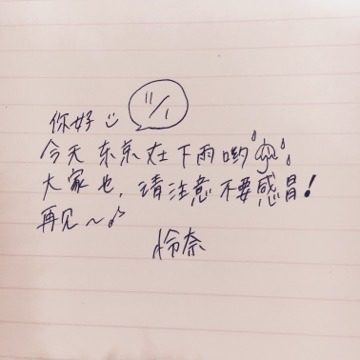 11/1
你好
今天 东京在下雨哟
大家也，请注意不要感冒！
再见～♪
怜奈